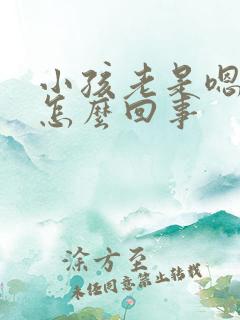 小孩老是嗯
怎麼回事
涂方至
未经同意禁止转载